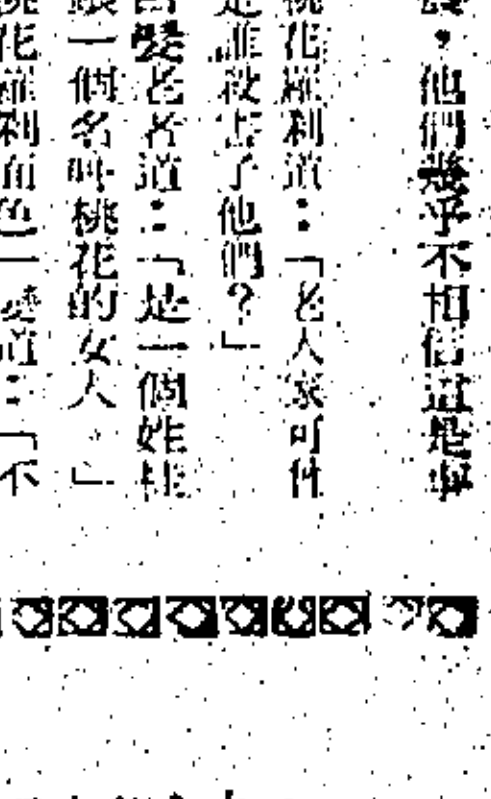 ，他們幾乎不相信這是事
桃花羅剎道：「老人家可件
是誰殺害了他們？」
白髮老者道：「是一個姓桂
跟一個名叫桃花的女人。」
桃花羅剎面色一變道：「不